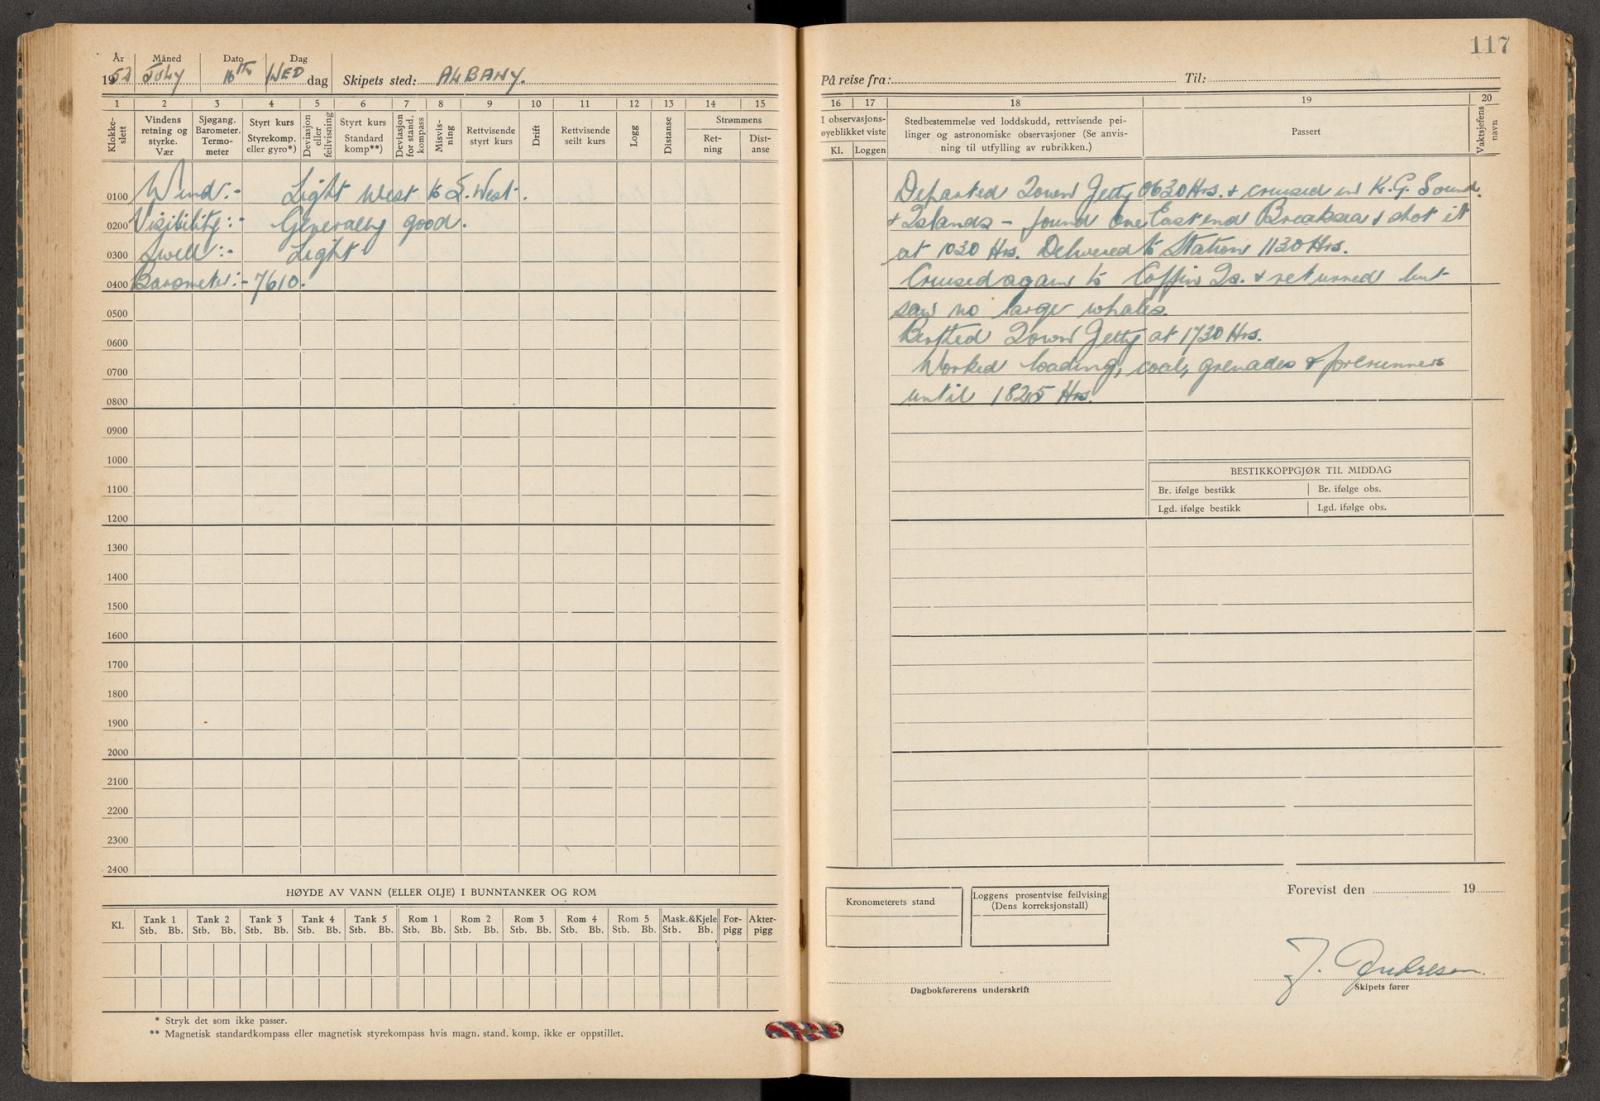 117
År Måned Dato Dag
1952 July 16th WED dag Skipets sted: ALBANY.
På reise fra: Til:
1 2 3 4 5 6 7 8 9 10 11 12 13 14 15
Klokkeslett
Vindens retning og styrke. Vær
Sjøgang. Barometer. Termometer
Styrt kurs Styrekomp. eller gyro*)
Deviasjon eller feilvisning
Styrt kurs Standard komp**)
Deviasjon for stand. kompass
Misvisning
Rettvisende styrt kurs
Drift
Rettvisende seilt kurs
Logg
Distanse
Strømmens
Retning
Distanse
16 17 18 19 20
I observasjonsøyeblikket viste
Kl. Loggen
Stedbestemmelse ved loddskudd, rettvisende peilinger og astronomiske observasjoner (Se anvisning til utfylling av rubrikken.)
Passert
Vaktsjefens navn
0100 Wind:- Light West to S. West.
0200 Visibility:- Generally good.
0300 Swell:- Light
0400 Barometer:- 7610.
0500
0600
0700
0800
0900
1000
1100
1200
1300
1400
1500
1600
1700
1800
1900
2000
2100
2200
2300
2400
Departed Town Jetty 0630 Hrs. & cruised in K.G. Sound.
& Islands - found one East end Breaksea & shot it
at 1030 Hrs. Delivered to Station 1130 Hrs.
Cruised again to Coffin Is. & returned but
saw no large whales.
Berthed Town Jetty at 1730 Hrs.
Worked loading, coal, grenades & forerunners
until 1825 Hrs.
BESTIKKOPPGJØR TIL MIDDAG
Br. ifølge bestikk Br. ifølge obs.
Lgd. ifølge bestikk Lgd. ifølge obs.
HØYDE AV VANN (ELLER OLJE) I BUNNTANKER OG ROM
Kl. Tank 1 Tank 2 Tank 3 Tank 4 Tank 5 Rom 1 Rom 2 Rom 3 Rom 4 Rom 5 Mask.&Kjele Forpigg Akterpigg
Stb. Bb. Stb. Bb. Stb. Bb. Stb. Bb. Stb. Bb. Stb. Bb. Stb. Bb. Stb. Bb. Stb. Bb. Stb. Bb. Stb. Bb.
* Stryk det som ikke passer.
** Magnetisk standardkompass eller magnetisk styrekompass hvis magn. stand. komp. ikke er oppstillet.
Kronometerets stand
Loggens prosentvise feilvising
(Dens korreksjonstall)
Forevist den 19
Dagbokførerens underskrift
J. Andresen.
Skipets fører